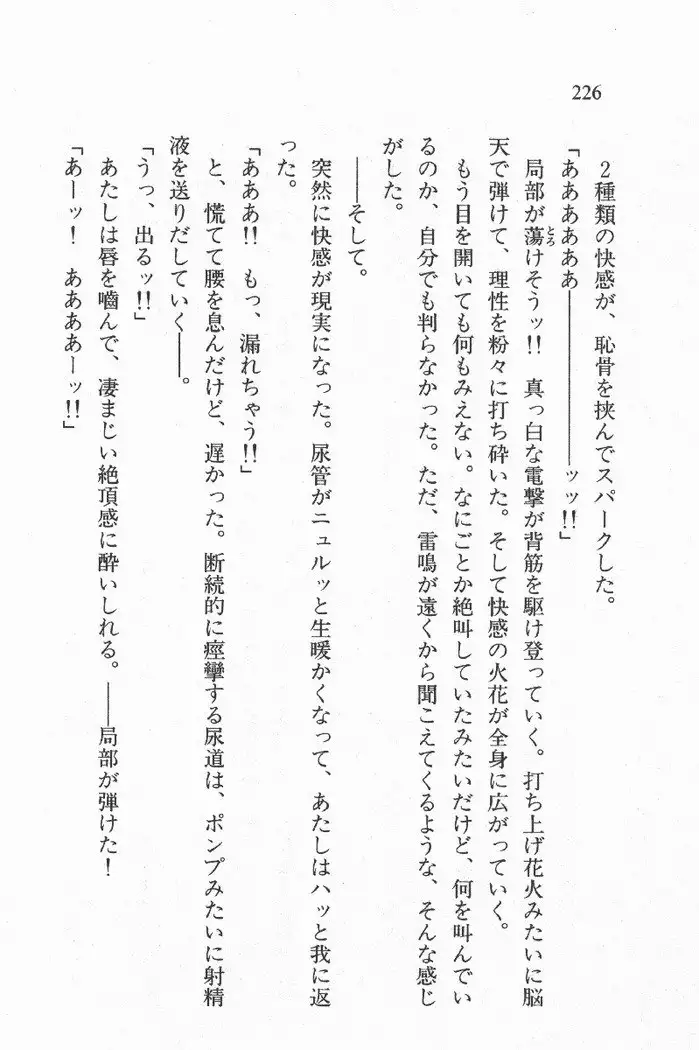 226
２種類の快感が、恥骨を挟んでスパークした。
「ああああああ――――――――ッッ!!」
局部が蕩けそうッ!!　真っ白な電撃が背筋を駆け登っていく。打ち上げ花火みたいに脳
天で弾けて、理性を粉々に打ち砕いた。そして快感の火花が全身に広がっていく。
もう目を開いても何もみえない。なにごとか絶叫していたみたいだけど、何を叫んでい
るのか、自分でも判らなかった。ただ、雷鳴が遠くから聞こえてくるような、そんな感じ
がした。
――そして。
突然に快感が現実になった。尿管がニュルッと生暖かくなって、あたしはハッと我に返
った。
「あああ!!　もっ、漏れちゃう!!」
と、慌てて腰を息んだけど、遅かった。断続的に痙攣する尿道は、ポンプみたいに射精
液を送りだしていく――。
「うっ、出るッ!!」
あたしは唇を噛んで、凄まじい絶頂感に酔いしれる。――局部が弾けた！
「あーッ！　ああああーッ!!」
とろ